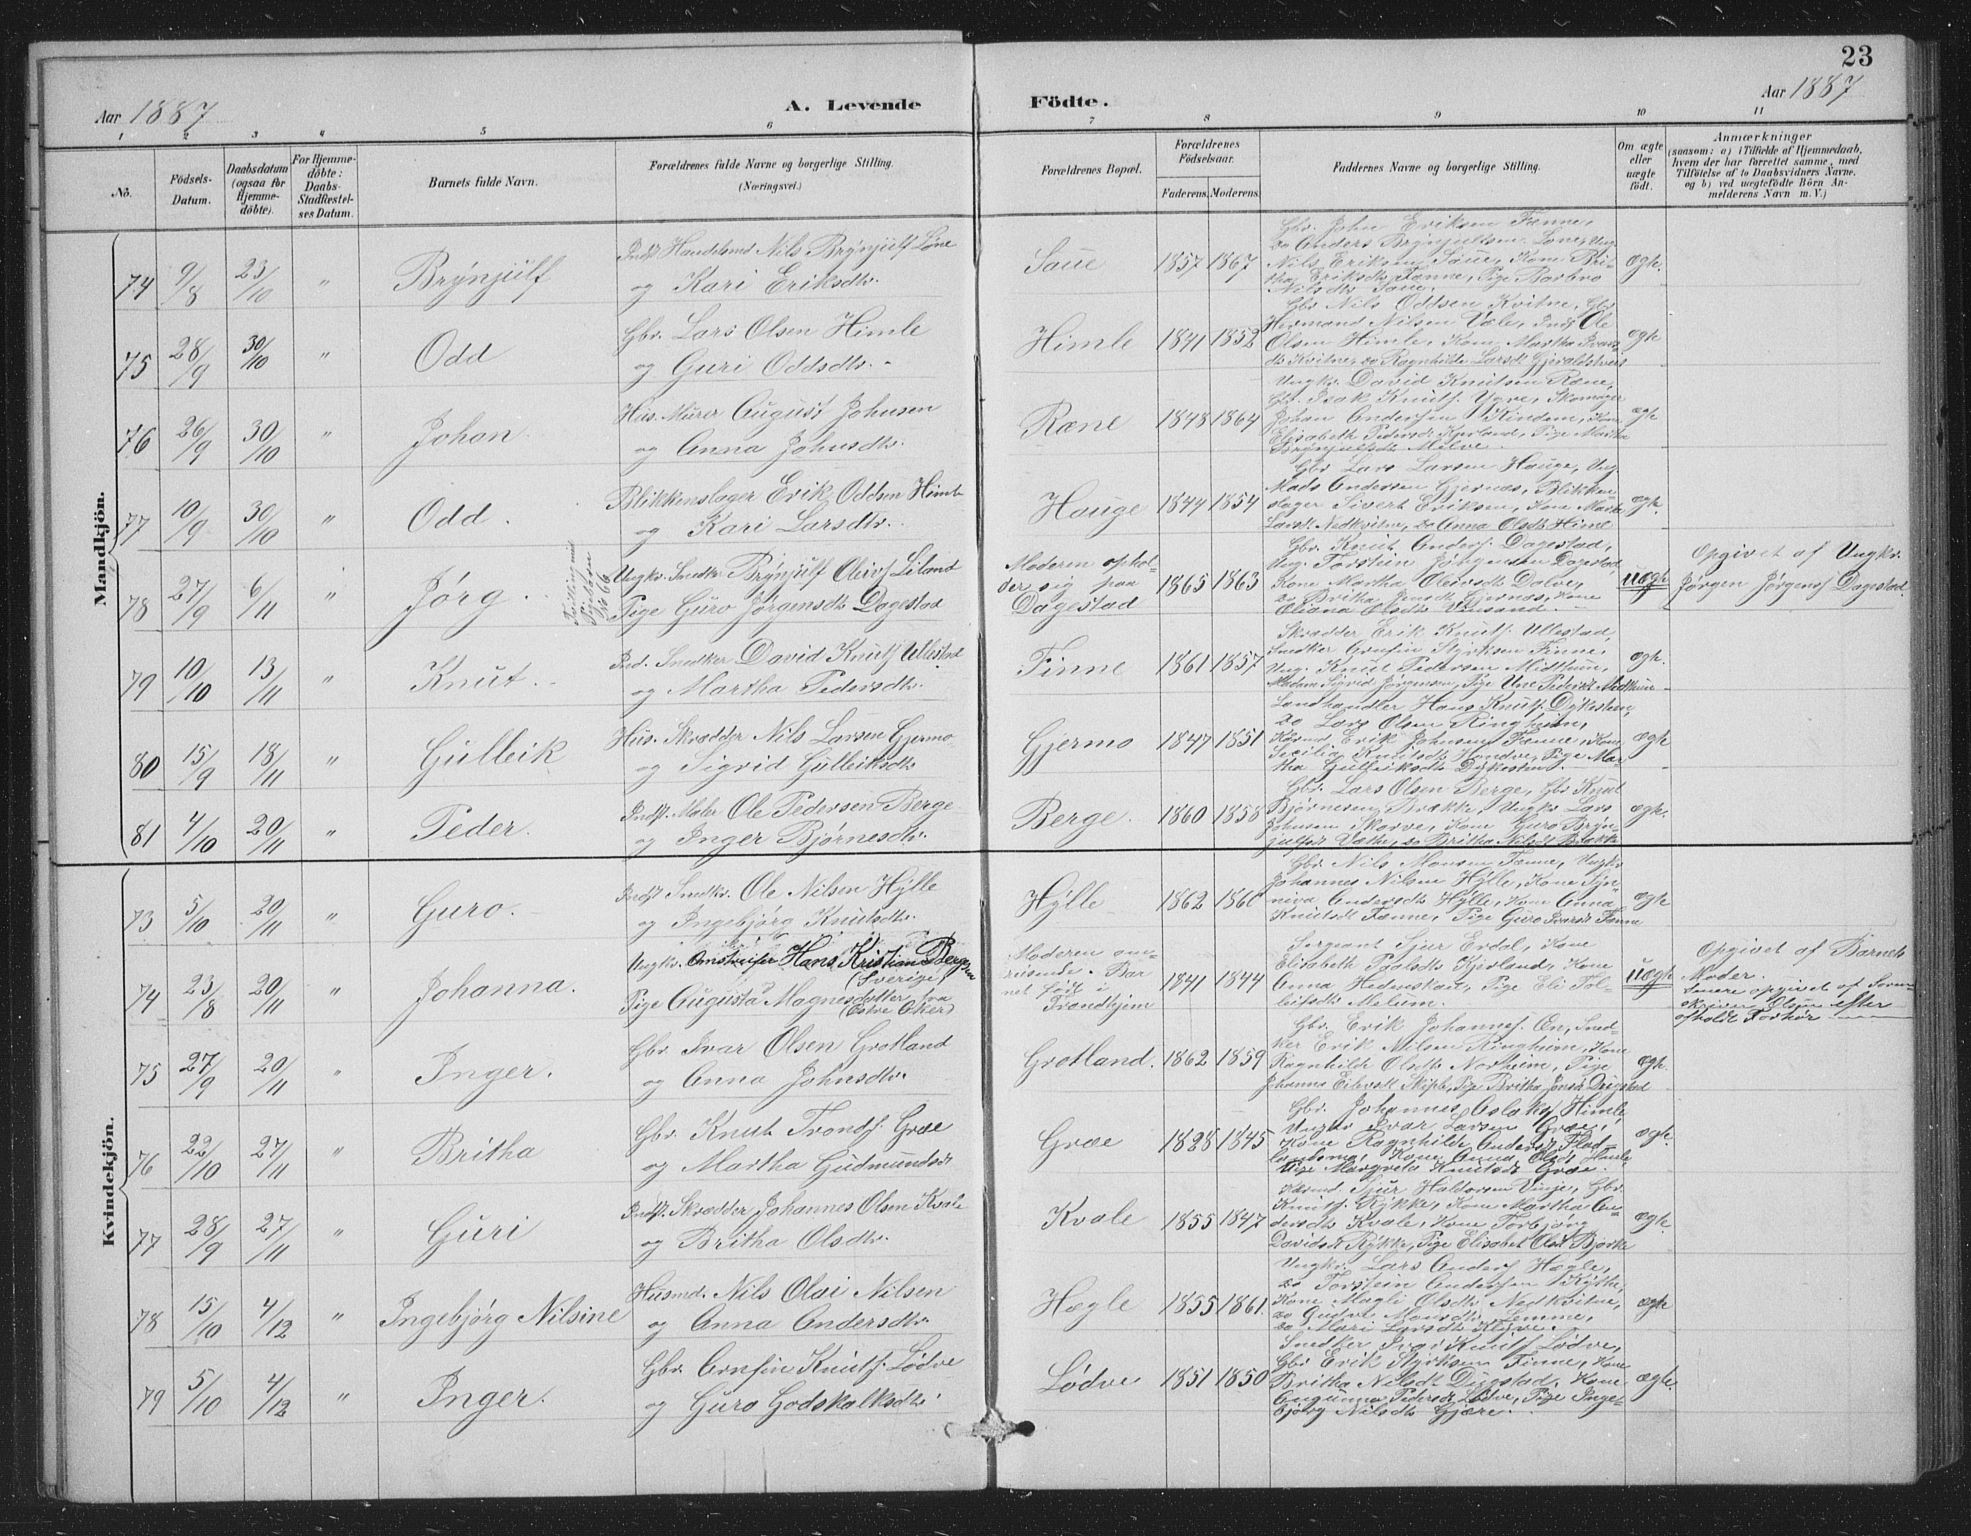 23
Aar 1887
A. Levende
Födte.
Aar 1887
1 2 3 4 5 6 7 8 9 10 11
No.
Födsels-Datum.
Daabsdatum (ogsaa for Hjemme-döbte).
For Hjemme-döbte: Daabs-Stadfæstel-ses Datum.
Barnets fulde Navn.
Forældrenes fulde Navne og borgerlige Stilling.
(Næringsvei.)
Forældrenes Bopæl.
Forældrenes Födselsaar.
Faderens. Moderens.
Faddernes Navne og borgerlige Stilling.
Om ægte eller uægte födt.
Anmærkninger
(saasom: a) i Tilfælde af Hjemmedaab,
hvem der har forrettet samme, med
Tilföielse af to Daabsvidners Navne,
og b) ved uægtefödte Börn An-
melderens Navn m. V.)
Mandkjön.
74 9/8 23/10 " Brÿnjülf
Indst Handelsmd Nils Brÿnjülfs Løne
og Kari Eriksdtr.
Saue 1857 1867
Gbr. John Eriksen Fenne,
do Anders Brÿnjulfsen Løne, Ung
Nils Eriksen Saue, Kone Bri-
tha Eriksdtr Fenne, Pige Barbro
Nilsdtr Saue.
ægte.
75 28/9 30/10 " Odd
Gbr. Lars Olsen Himle
og Guri Oddsdtr.
Himle 1841 1852
Gbr Nils Oddsen Kvitne, Gbr
Hermand Nilsen Væle, Inds Ole
Olsen Himle, Kone Martha Ivars-
dtr Kvitne, do Ragnhilde Larsdt Gjeraldstveit
ægte
76 26/9 30/10 " Johan
Hus. Murer August Johnsen
og Anna Johnsdtr.
Ræne 1848 1864
Ungkr. David Knutsen Ræne,
Gbr. Isak Knuts Ygre, Skomager
Johan Andersen Kindem, Kone
Elisabeth Pedersdt Kjerland, Pige Martha
Brynjulfsdt Melve
ægte
77 10/9 30/10 " Odd
Blikkenslager Erik Oddsen Himle
og Kari Larsdtr.
Hauge 1844 1854
Gbr Lars Larsen Hauge, Ung
Mads Andersen Gjernæs, Blikken-
slager Sivert Eriksen, Kone Martha
Larsdt Nedkvitne, do Anna Olsdt Himle
ægte.
78 27/9 6/11 " Jørg
Tvilling med
Pigebarn
No 66
Ungkr. Snedkr Brÿnjulf Oleivs Leiland
Pige Güro Jørgensdtr Dagestad
Moderen ophol-
der sig paa
Dagestad
1865 1863
Gbr. Knut Anders Dagestad,
Ung. Torstein Jørgensen Dagestad
Kone Martha Oleivsdt Dolve,
do Britha Jonsdt Gjernæs, Kone
Eliana Olsdt Vinsand.
uægte
Opgivet af Ungkr.
Jørgen Jørgens Dagestad.
79 10/10 13/11 " Knut.
Ind. Snedker David Knuts Ullestad
og Martha Pedersdtr.
Finne 1861 1857
Skrædder Erik Knuts Ullestad,
Snedker Arnfin Styrksen Finne,
Ung. Knud Pedersen Midthun,
Madam Sigrid Jørgensen, Pige Une Pedersdt Midthun
ægte.
80 15/9 18/11 " Gulleik
Hus. Skrædder Nils Larsen Gjermo
og Sigrid Gulleiksdtr
Gjermo 1847 1851
Landhandler Hans Knuts Dykesteen,
do Lars Olsen Ringheim,
Kaarmd Erik Johnsen Fenne, Kone
Secilia Knutsdt Hondve, Pige Mar-
tha Gulleiksdtr Dykesteen
ægte
81 4/10 20/11 " Peder.
Indst. Maler Ole Pedersen Berge
og Inger Bjørnesdtr.
Berge. 1860 1858
Gbr. Lars Olsen Berge, Gbr Knut
Bjørnesen Brække, Ungkr Lars
Johnsen Skorve, Kone Guro Bryn-
julfsdt Væthe, do Britha Nilsdt Brække
ægte.
Kvindekjön.
73 5/10 20/11 " Guro.
Indst Snedkr. Ole Nilsen Hÿlle
og Ingebjørg Knutsdtr.
Hÿlle 1862 1860
Gbr Nils Monsen Fenne, Ungkr
Johannes Nilsen Hÿlle, Kone Syn-
niva Andersdt Hÿlle, Kone Anna
Knutsdt Fenne, Pige Guro Ivarsdt Fenne
ægte
74 23/8 20/11 Johanna.
Ungkr. Omstreifer Hans Kristian Bergsen
(Sverige)
Pige Augusta Magnesdatter fra
(Østre Eker)
Moderen om-
reisende. Bar-
net født i
Trondhjem
1841 1844
Sergeant Sjur Erdal, Kone
Elisabeth Paalsdt Kjerland, Kone
Anna Hedenstad, Pige Eli Tol-
leifsdt Melum.
uægte
Opgivet af Barnets
Moder.
Senere opgivet af Soren-
skriver Olsen efter
afholdt Forhør
75 27/9 20/11 " Inger.
Gbr Ivar Olsen Grotland
og Anna Johnsdtr.
Grotland. 1862 1859
Gbr. Erik Johannes. On, Sned-
ker Erik Nilsen Ringheim, Kone
Ragnhilde Olsdtr Norheim, Pige
Johanna Eilevsdt Skiple, Pige Britha Jonsdt Dugstad
ægte.
76 22/10 27/11 " Britha
Gbr. Knut Tronds. Græe
og Martha Gudmundsdt
Græe 1828 1845
Gbr. Johannes Aslaks Himle,
Ungkr Ivar Larsen Græe,
Kone Ragnhilde Andersdt Flad-
landsmo, Kone Anna Olsdt Himle,
Pige Margreta Knutsdt Græe.
ægte.
77 28/9 27/11 " Guri
Indst. Skrædder Johannes Olsen Kvale
og Britha Olsdtr.
Kvale 1855 1847
Kaarmd. Sjur Haldorsen Vinje, Gbr
Knut Rykke, Kone Martha An-
dersdt Kvale, Kone Torbjørg
Davidsdt Rykke, Pige Elisabet Olsdt Bjørke
ægte.
78 15/10 4/12 " Ingebjørg Nilsine
Husmd. Nils Olai Nilsen
og Anna Andersdtr.
Hægle 1855 1861.
Ungkr. Lars Anders Hægle,
do Torstein Andersen Kÿthe,
Kone Magli Olsdtr Nedkvitne,
do Gudve Monsdt Lemme,
do Mari Larsdt Kløve.
ægte
79 5/10 4/12 " Inger.
Gbr. Arnfin Knuts. Lødve
og Guro Godskalksdtr.
Lødve 1851 1850
Snedker Ivar Knuts Lødve,
Gbr Erik Styrksen Finne, Kone
Britha Nilsdt Dugstad, Kone
Angunna Pedersdt Lødve, Pige Inge-
bjørg Nilsdt Gjære.
ægte.